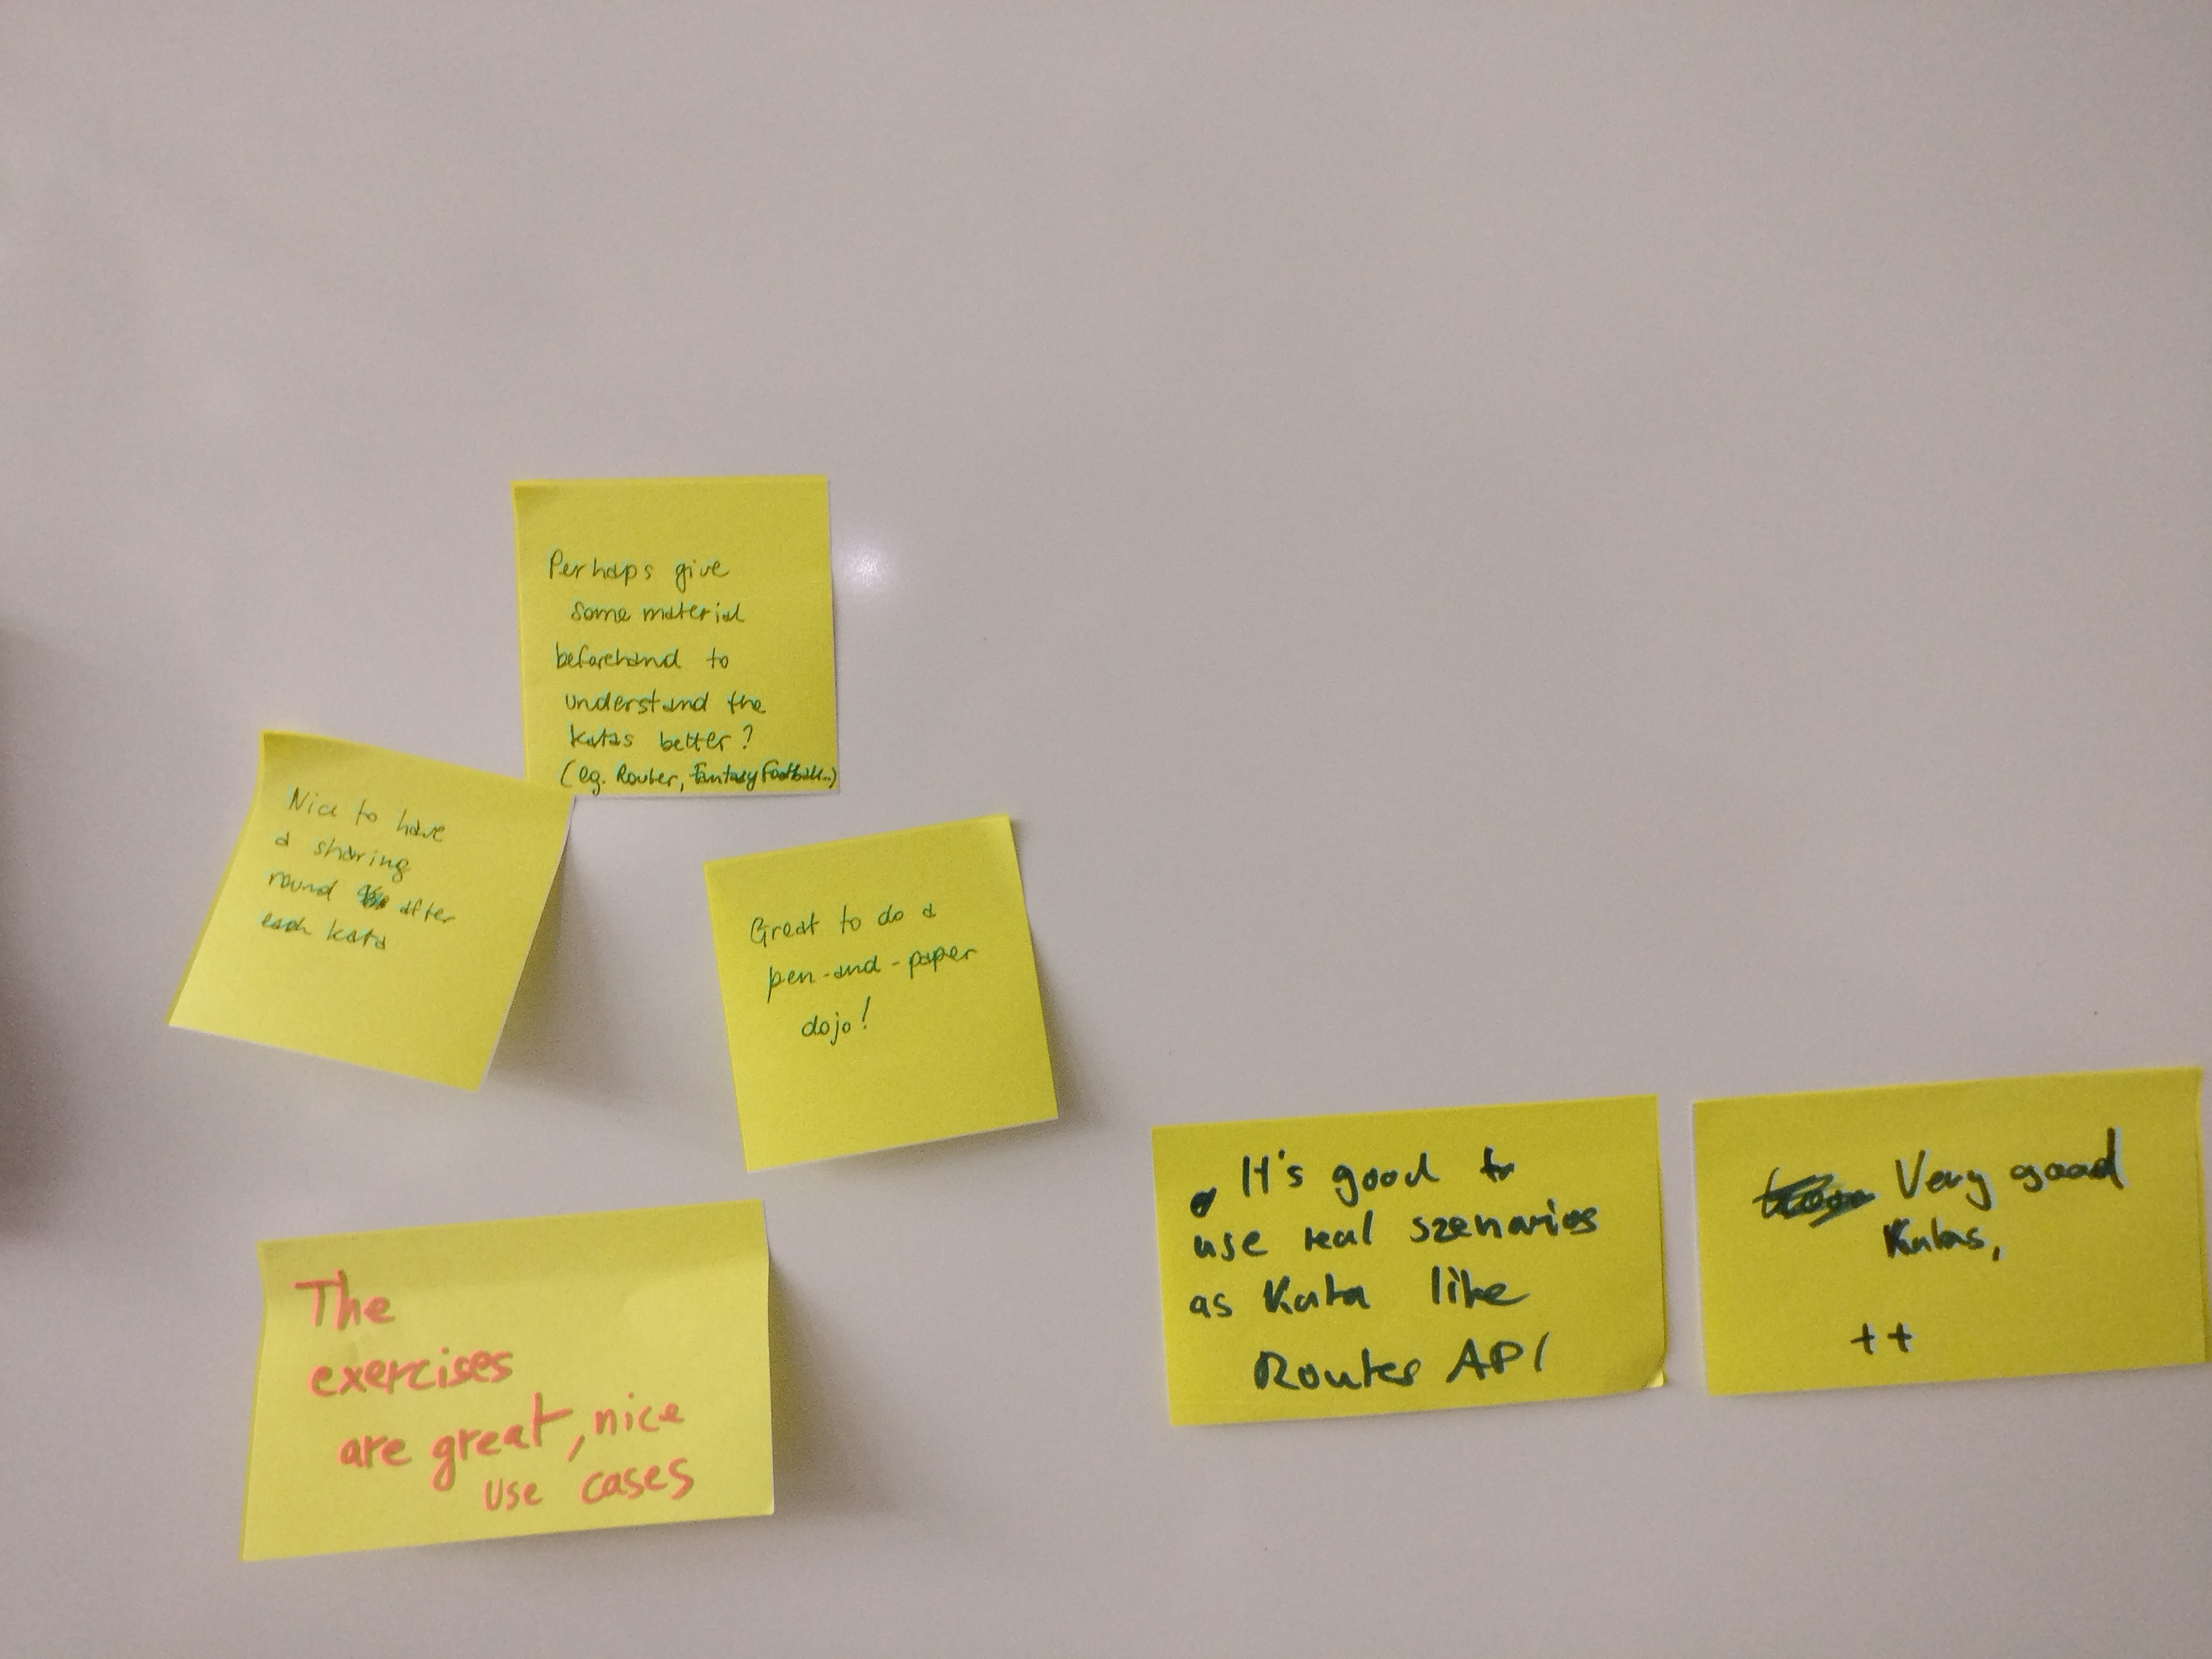 Perhaps give
some material
beforehand to
understand the
katas better?
(eg. Router, Fantasy Football..)
Nice to have
a sharing
round after
each kata
Great to do a
pen-and-paper
dojo!
The
exercises
are great, nice
use cases
It's good to
use real szenarios
as Kata like
Router API
Very good
Katas,
++